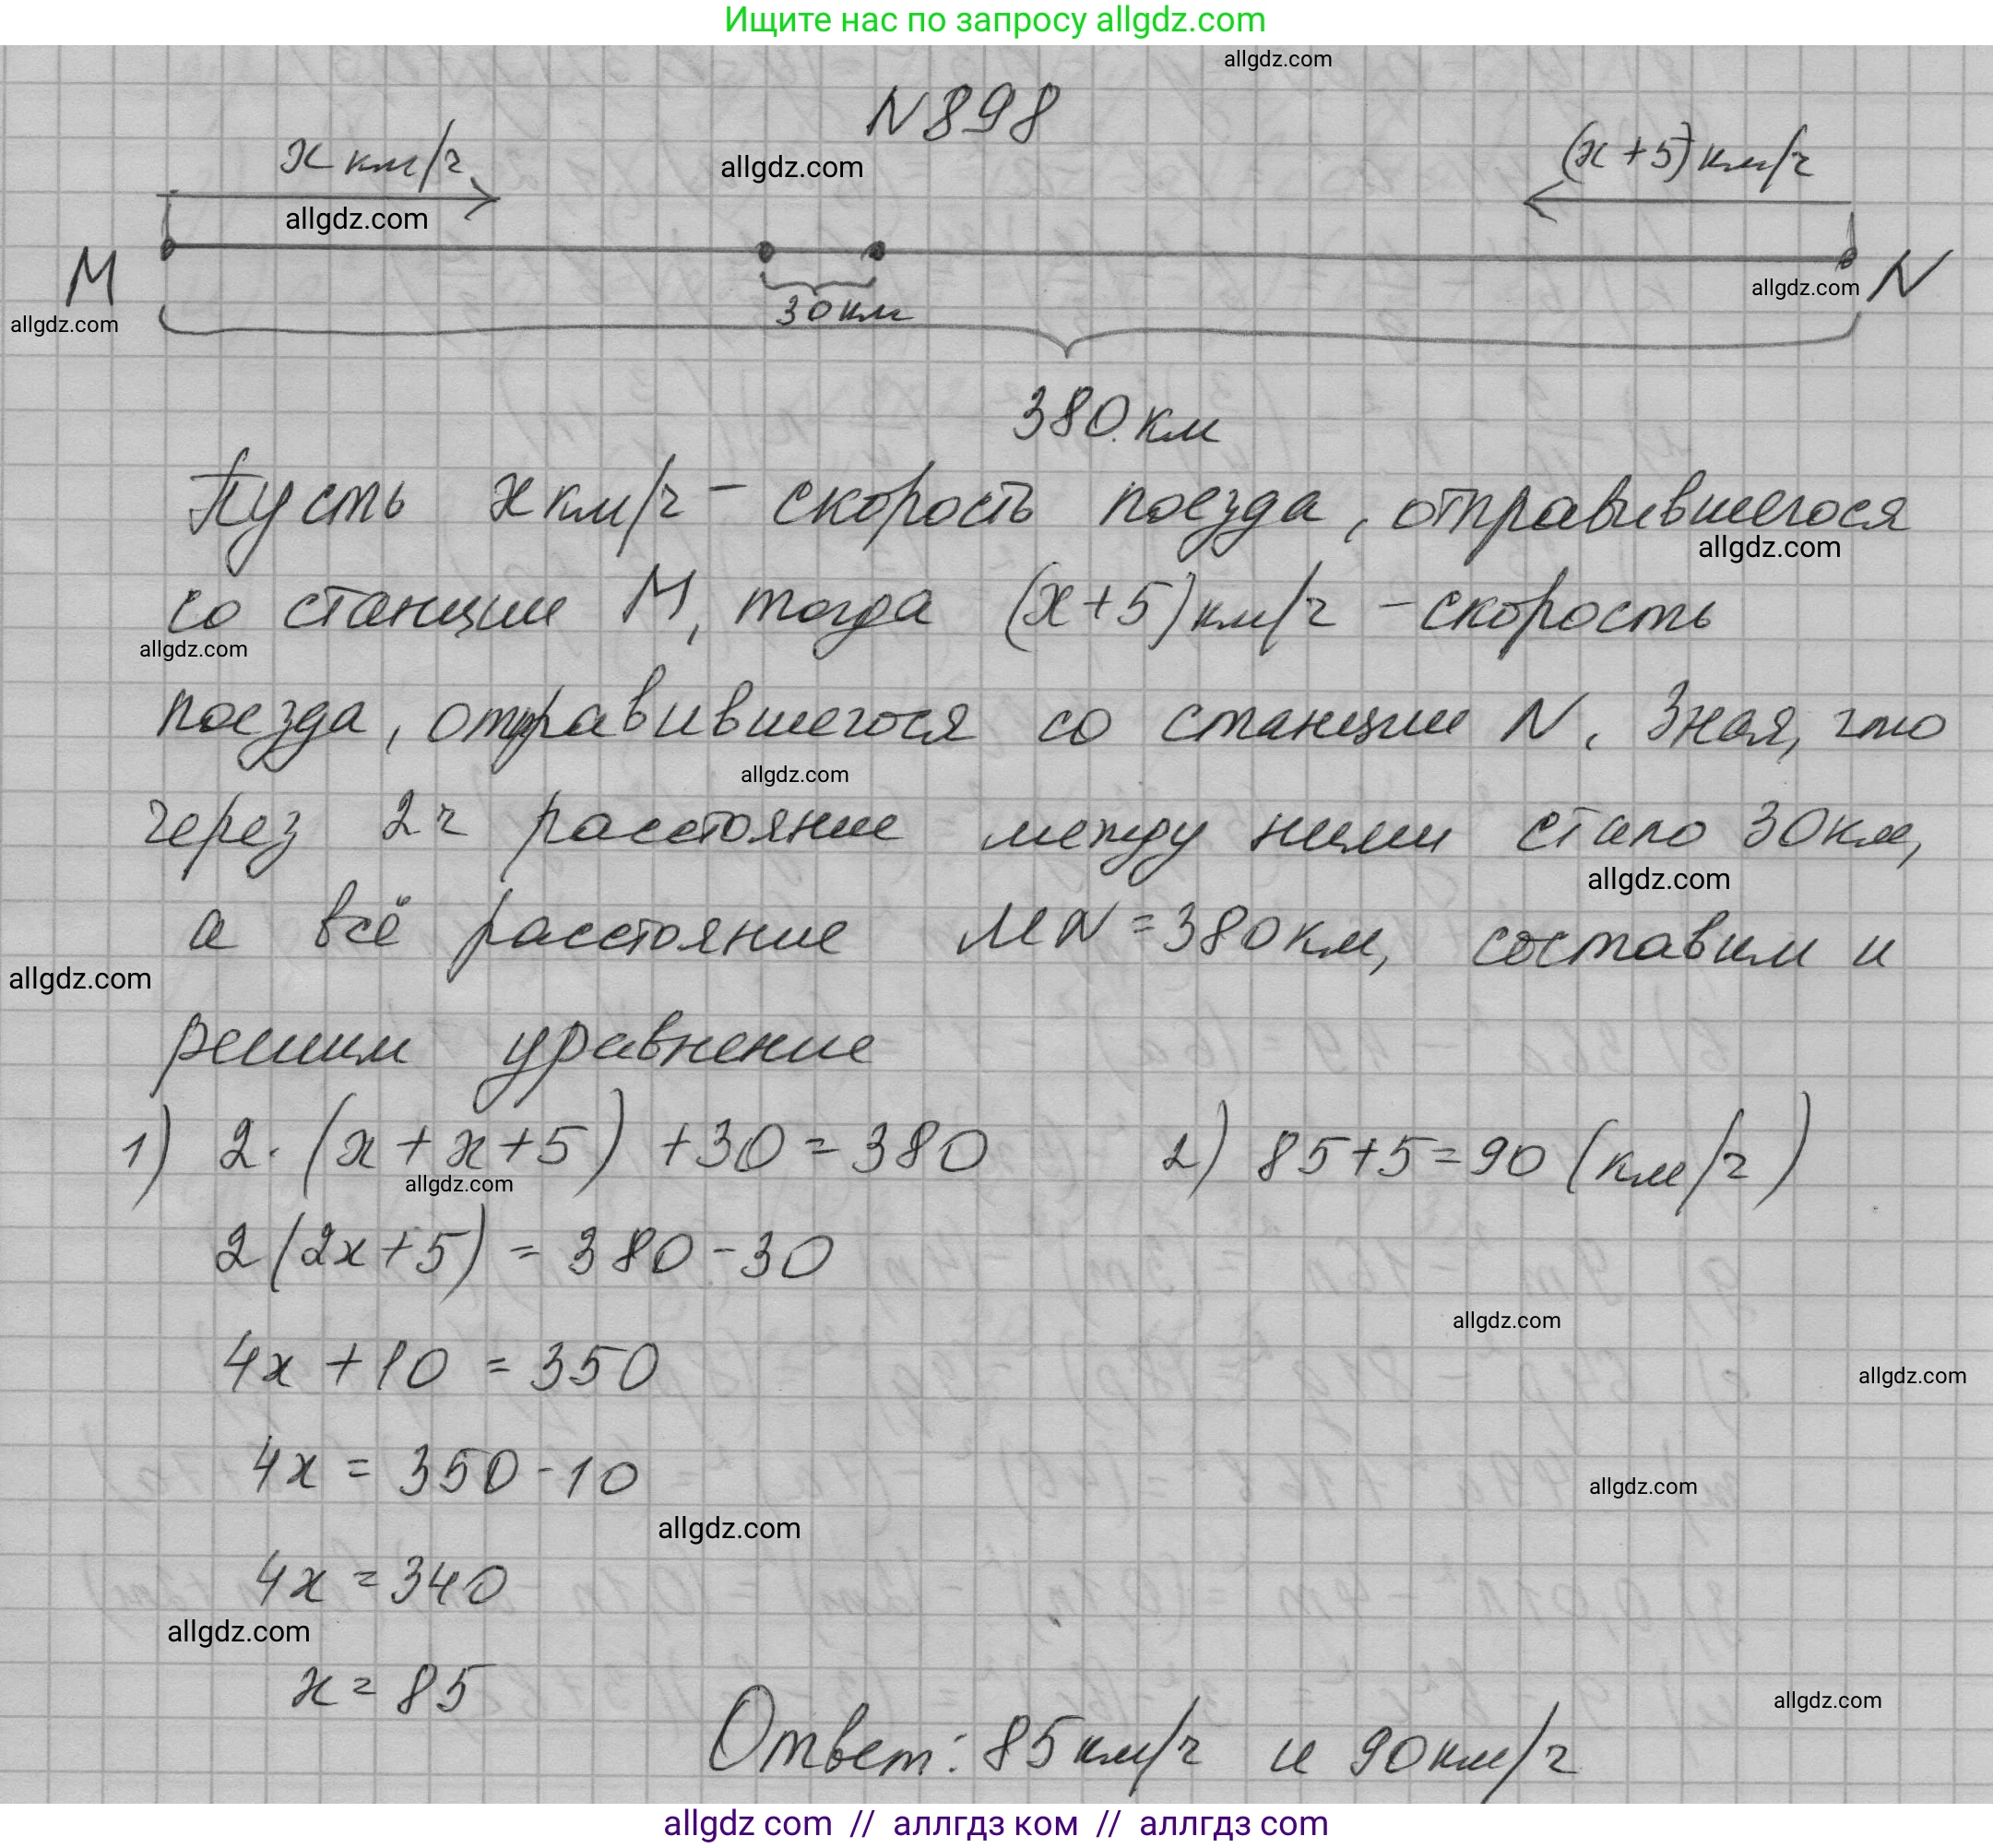 Ищите нас по запросу allgdz.com
allgdz.com
N898
x км/ч
allgdz.com
(x+5) км/ч
allgdz.com
M
allgdz.com
N
allgdz.com
30 км
380 км
Пусть x км/ч – скорость поезда, отправившегося
allgdz.com
со станции M, тогда (x+5) км/ч – скорость
allgdz.com
поезда, отправившегося со станции N. Зная, что
allgdz.com
через 2ч расстояние между ними стало 30км,
allgdz.com
а всё расстояние MN = 380км, составим и
allgdz.com
решим уравнение
1) 2·(x+x+5)+30=380
2) 85+5=90 (км/ч)
allgdz.com
2(2x+5) = 380-30
allgdz.com
4x+10 = 350
allgdz.com
4x = 350-10
allgdz.com
allgdz.com
4x = 340
allgdz.com
x = 85
allgdz.com
Ответ: 85км/ч и 90км/ч
allgdz com // аллгдз ком // аллгдз com